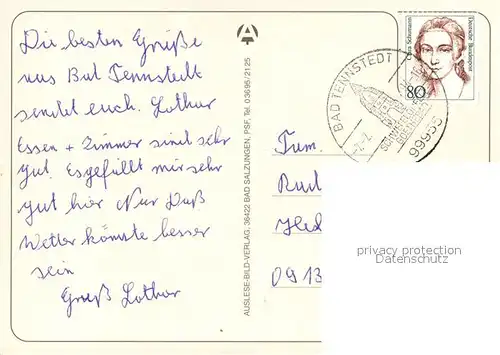 Die besten Grüße
aus Bad Tennstedt
sendet euch. Lothar
Essen + Zimmer sind sehr
gut. Es gefällt mir sehr
gut hier Nur Daß
Wetter könnte besser
sein
Gruß Lothar
AUSLESE-BILD-VERLAG, 36422 BAD SALZUNGEN, PSF, Tel. 03695/2125
Clara Schumann
Deutsche Bundespost
80
BAD TENNSTEDT 1
99955
Fam.
Rud
0913
privacy protection
Datenschutz